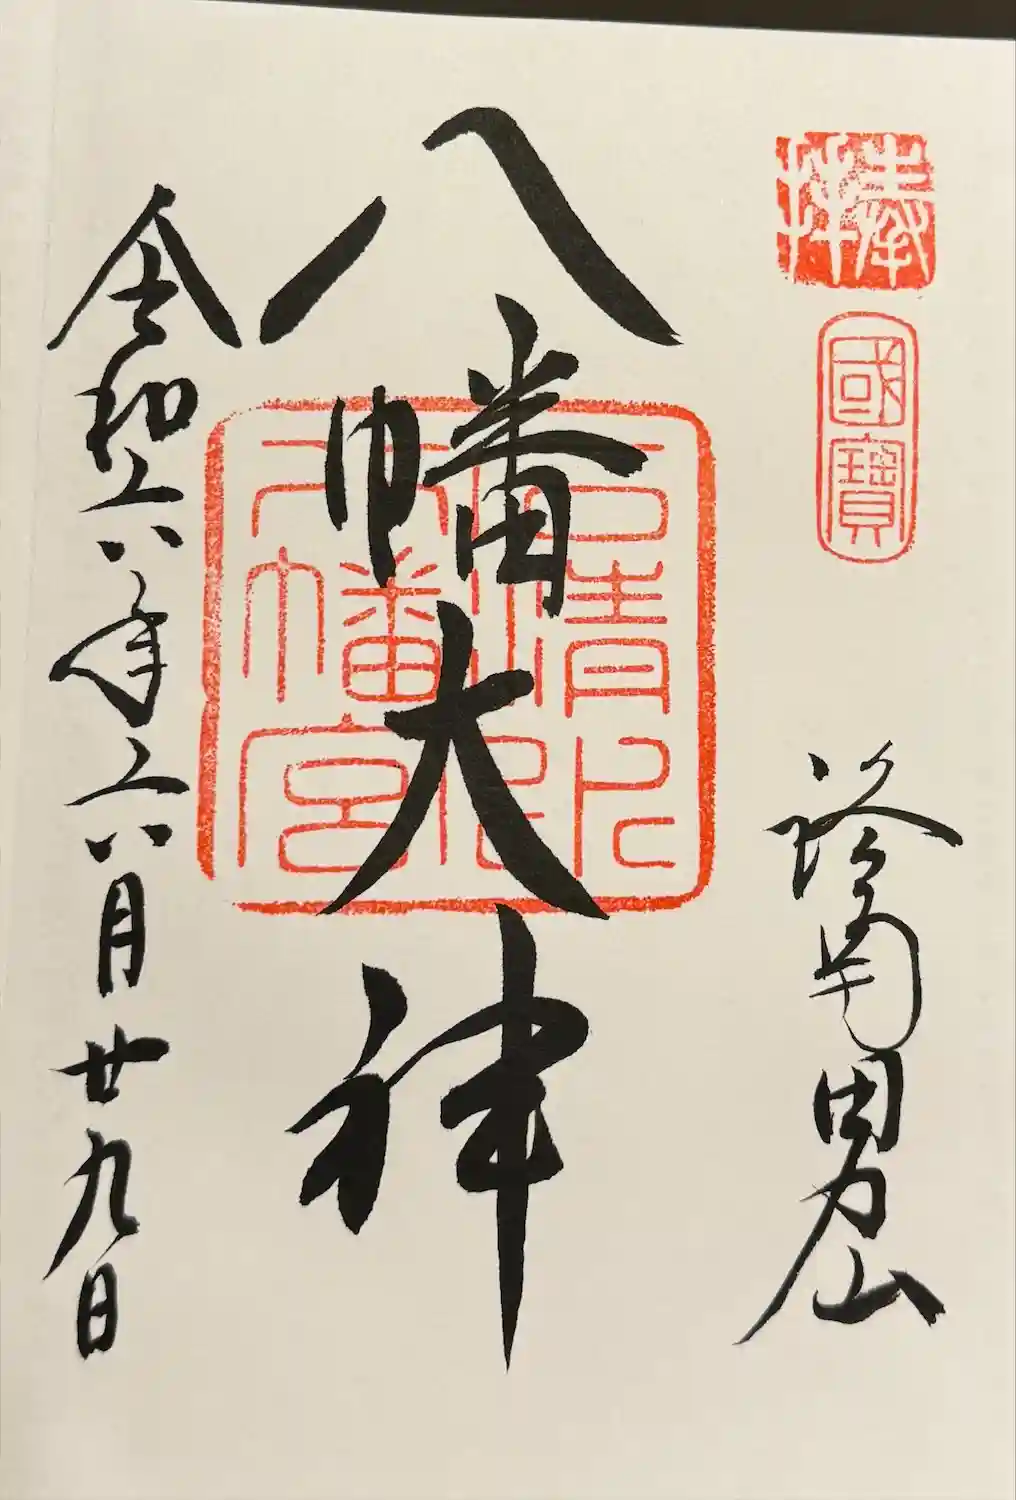 奉拝
國寶
男山
八幡大神
石清水八幡宮
令和六年六月廿九日